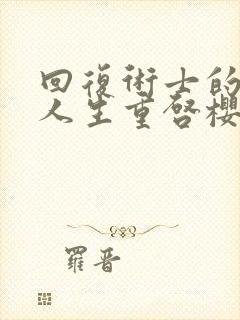 回復術士的
人生重啓櫻
羅晋